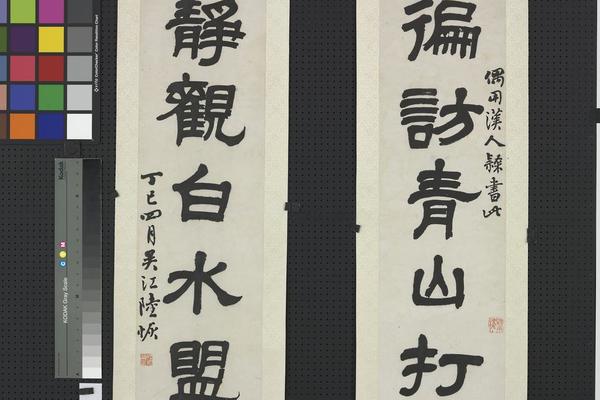 偶用漢人隸書此
徧訪青山打
靜觀白水盟
丁巳四月吳江陸恢
Kodak
KODAK Gray Scale
C
M